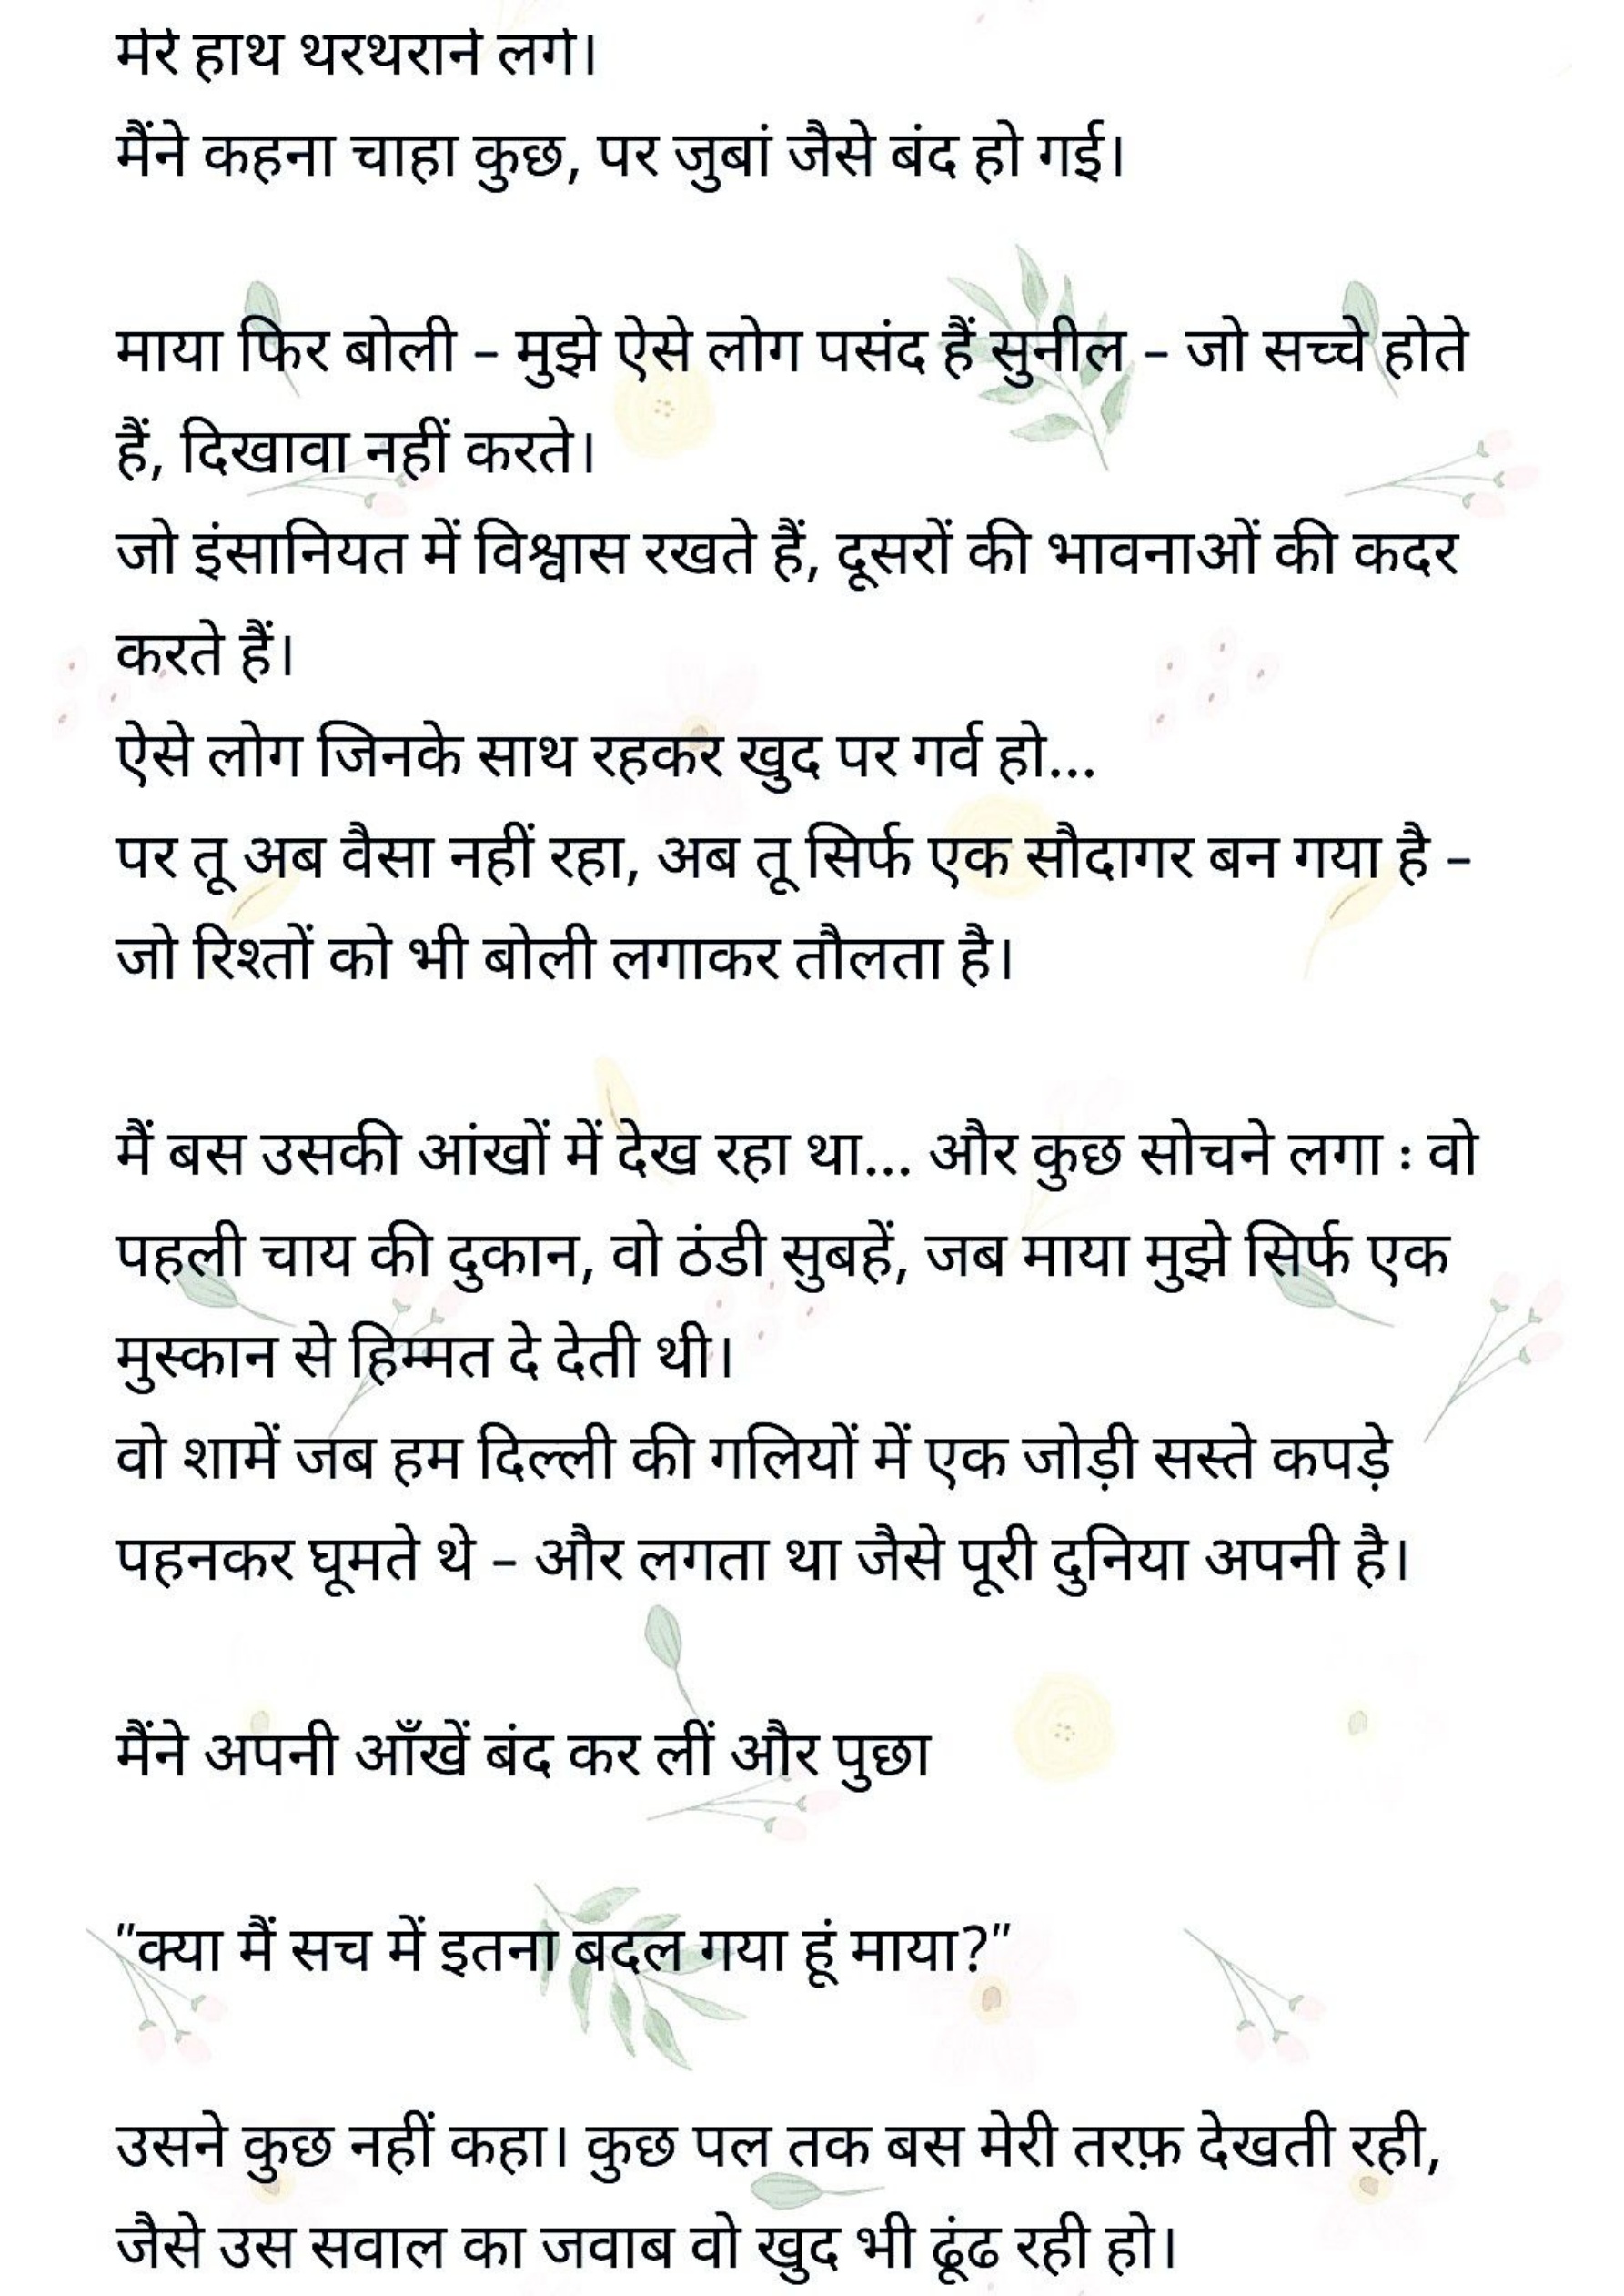 मेरे हाथ थरथराने लगे।
मैंने कहना चाहा कुछ, पर जुबां जैसे बंद हो गई।
माया फिर बोली – मुझे ऐसे लोग पसंद हैं सुनील – जो सच्चे होते
हैं, दिखावा नहीं करते।
जो इंसानियत में विश्वास रखते हैं, दूसरों की भावनाओं की कदर
करते हैं।
ऐसे लोग जिनके साथ रहकर खुद पर गर्व हो...
पर तू अब वैसा नहीं रहा, अब तू सिर्फ एक सौदागर बन गया है –
जो रिश्तों को भी बोली लगाकर तौलता है।
मैं बस उसकी आंखों में देख रहा था... और कुछ सोचने लगा : वो
पहली चाय की दुकान, वो ठंडी सुबहें, जब माया मुझे सिर्फ एक
मुस्कान से हिम्मत दे देती थी।
वो शामें जब हम दिल्ली की गलियों में एक जोड़ी सस्ते कपड़े
पहनकर घूमते थे – और लगता था जैसे पूरी दुनिया अपनी है।
मैंने अपनी आँखें बंद कर लीं और पुछा
"क्या मैं सच में इतना बदल गया हूं माया?"
उसने कुछ नहीं कहा। कुछ पल तक बस मेरी तरफ़ देखती रही,
जैसे उस सवाल का जवाब वो खुद भी ढूंढ रही हो।